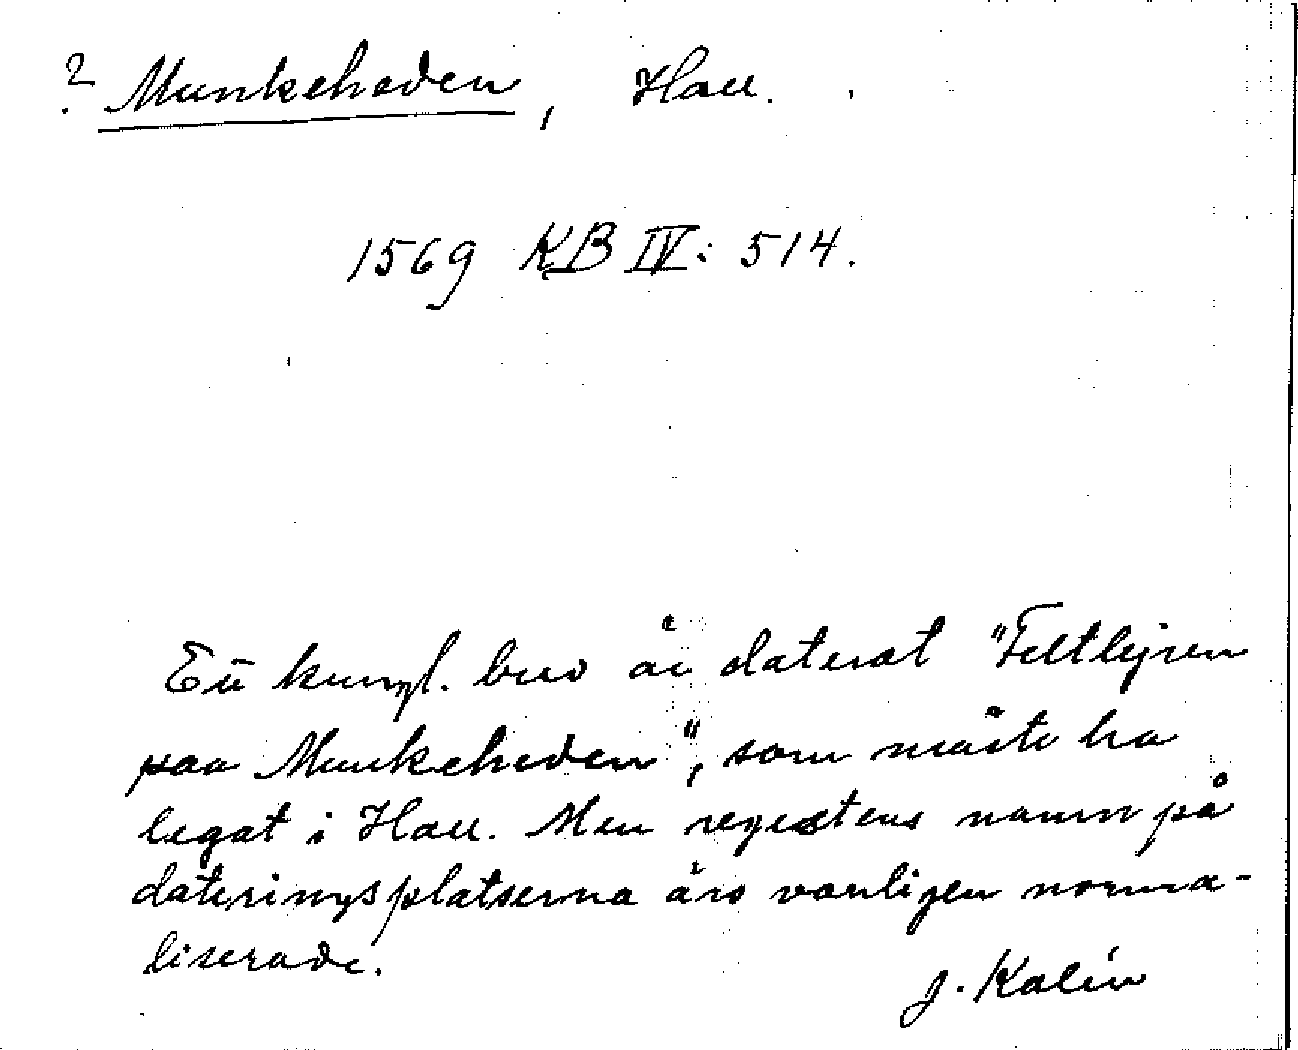 ? Munkeheden, Hall.
1569 KB IV: 514.
Ett kungl. brev är daterat "Feltlejren
paa Munkeheden", som måste ha
legat i Hall. Men regestens namn på
dateringsplatserna äro vanligen norma-
liserade.
J. Kalén